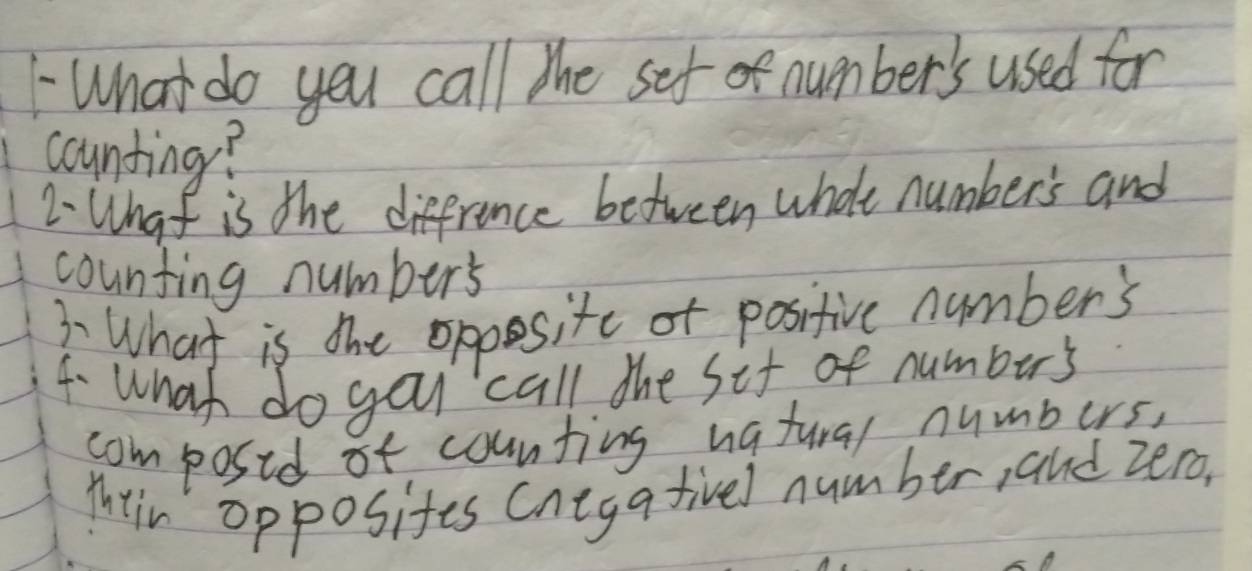 1- What do you call the set of number's used for
counting?
2- What is the diffrence between whole number's and
counting number's
3- What is the opposite of positive number's
4- What do you call the set of number's
composed of counting natural numbers,
their opposites (negative) number, and zero,